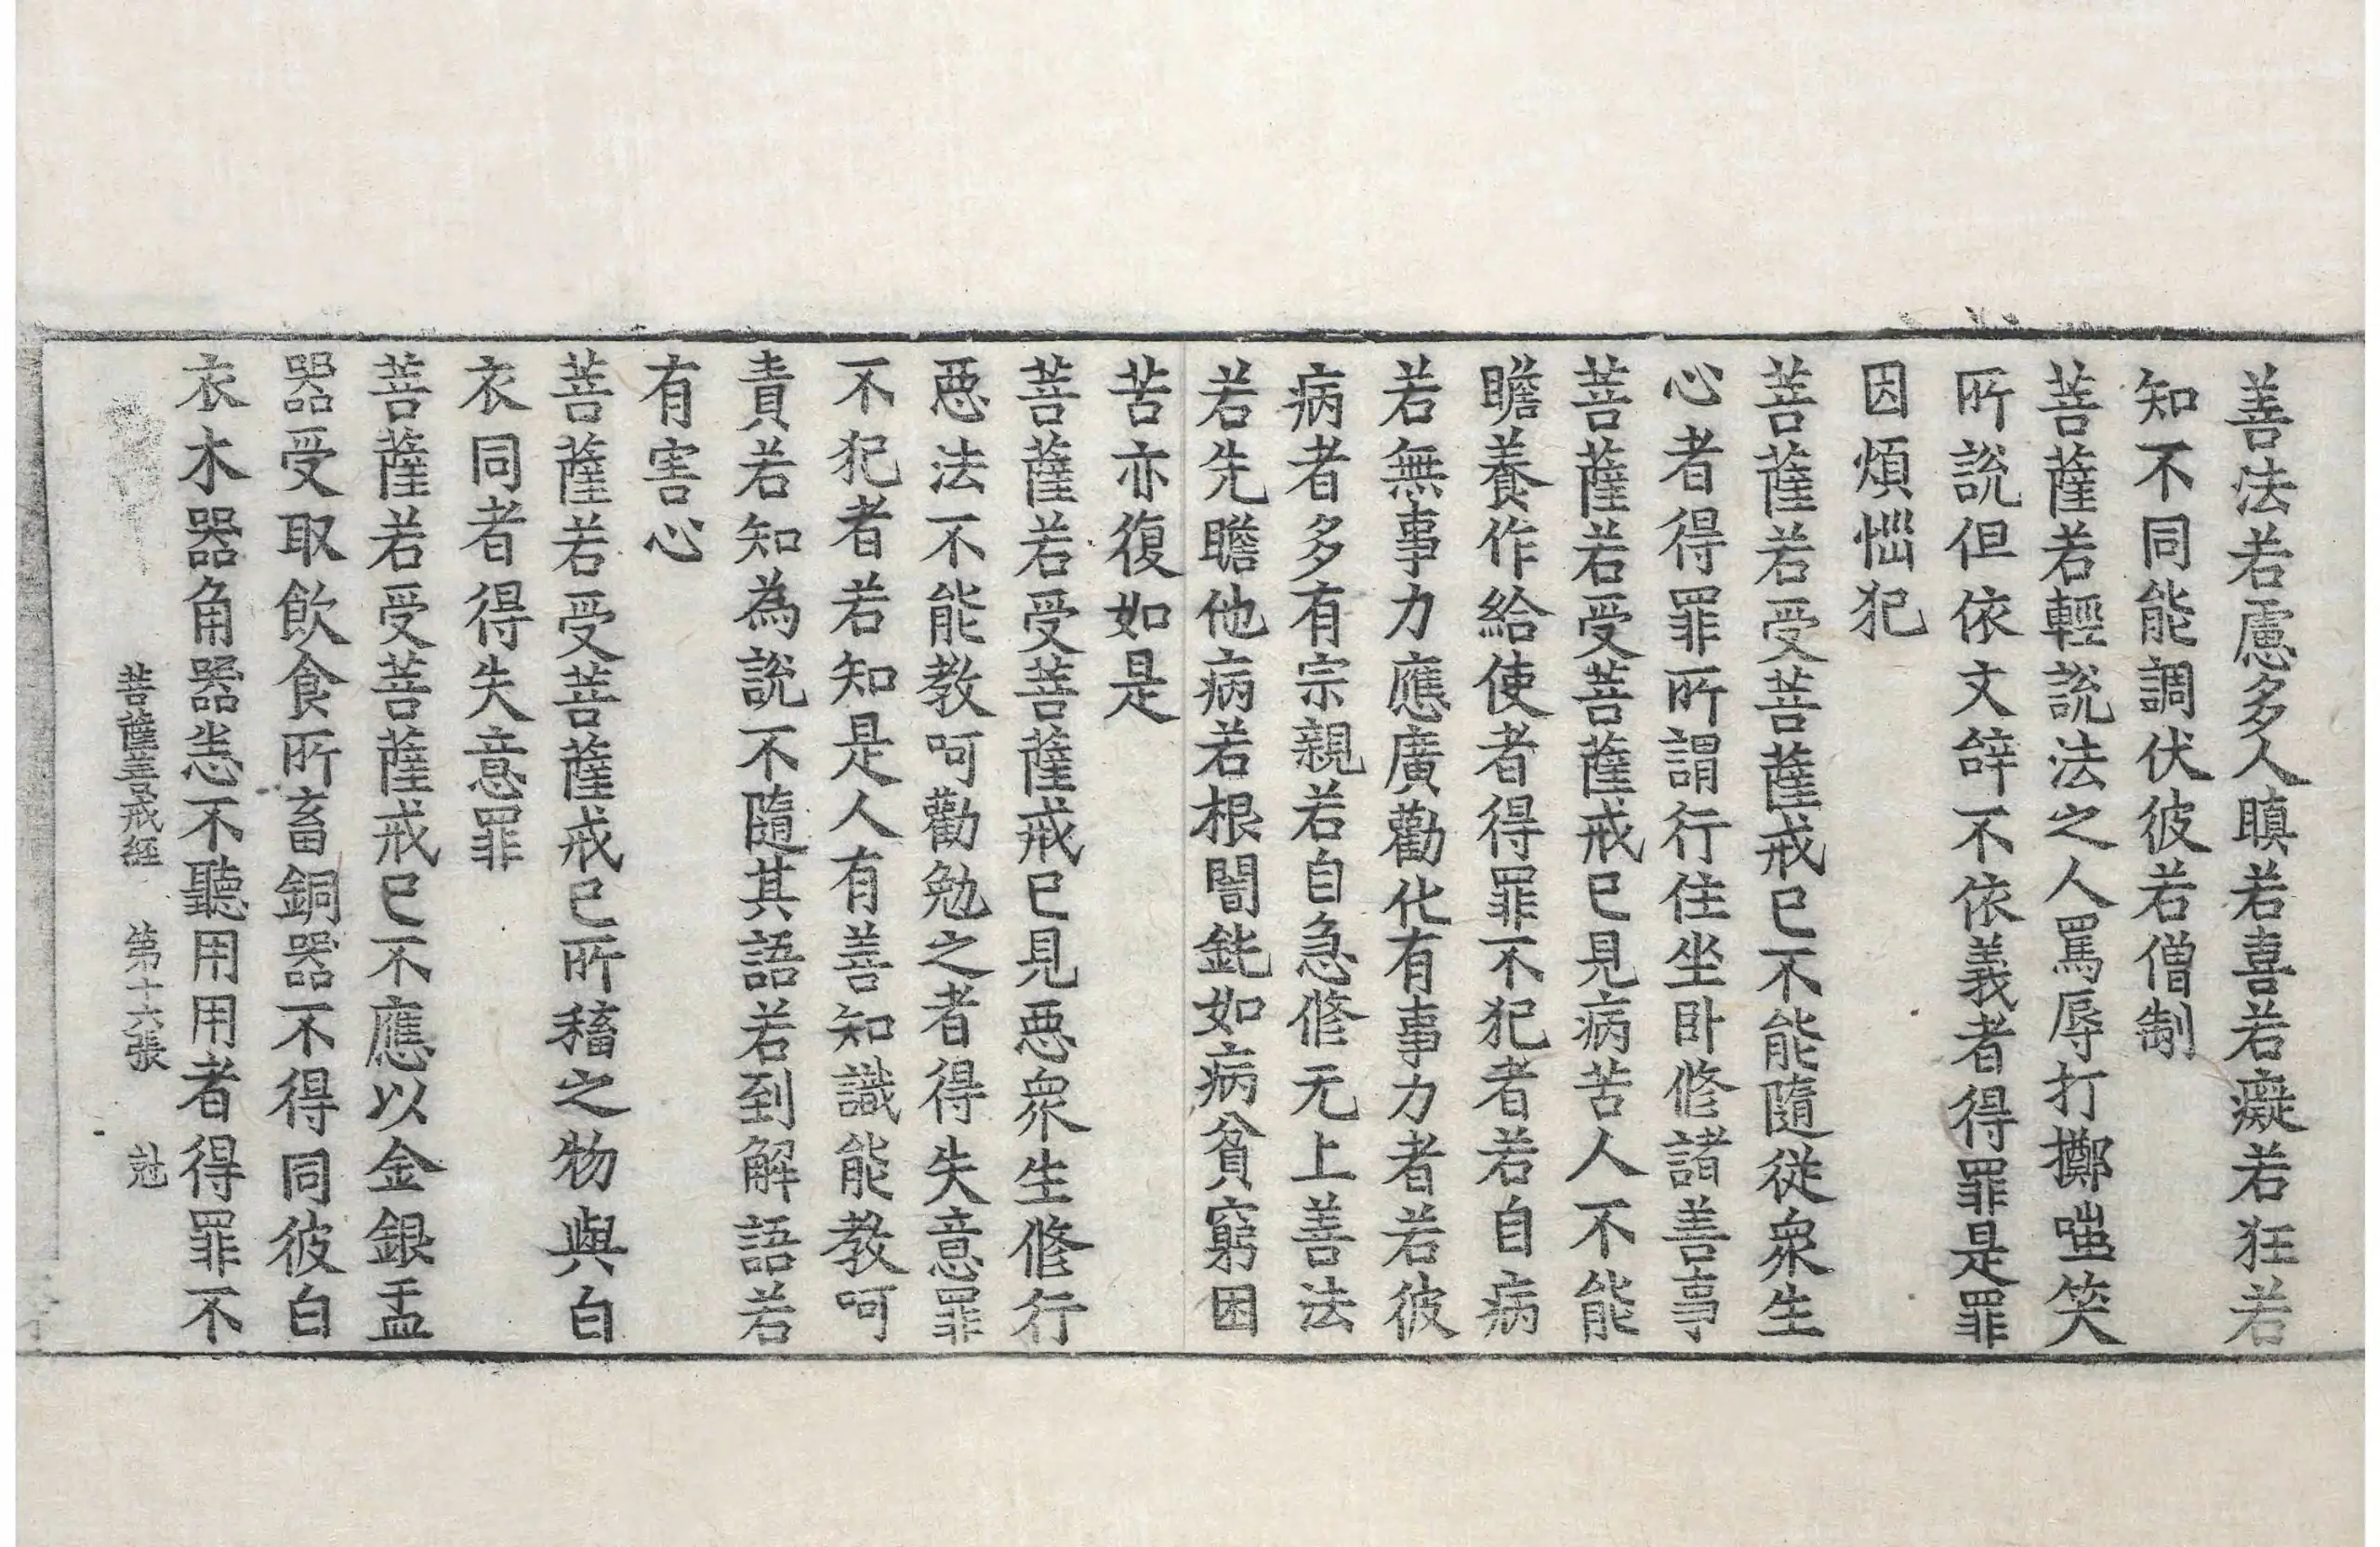 善法若慮多人瞋若喜若癡若狂若
知不同能調伏彼若僧制
菩薩若輕說法之人罵辱打擲嗤笑
所說但依文辞不依義者得罪是罪
因煩惱犯
菩薩若受菩薩戒已不能隨從衆生
心者得罪所謂行住坐卧修諸善事
菩薩若受菩薩戒已見病苦人不能
瞻養作給使者得罪不犯者若自病
若無事力應廣勸化有事力者若彼
病者多有宗親若自急修无上善法
若先瞻他病若根闇鈍如病貧窮困
苦亦復如是
菩薩若受菩薩戒已見惡衆生修行
惡法不能教呵勸勉之者得失意罪
不犯者若知是人有善知識能教呵
責若知為說不隨其語若到解語若
有害心
菩薩若受菩薩戒已所稸之物與白
衣同者得失意罪
菩薩若受菩薩戒已不應以金銀盂
器受取飲食所畜銅器不得同彼白
衣木器角器恙不聽用用者得罪不
菩薩善戒經 第十六張 尅